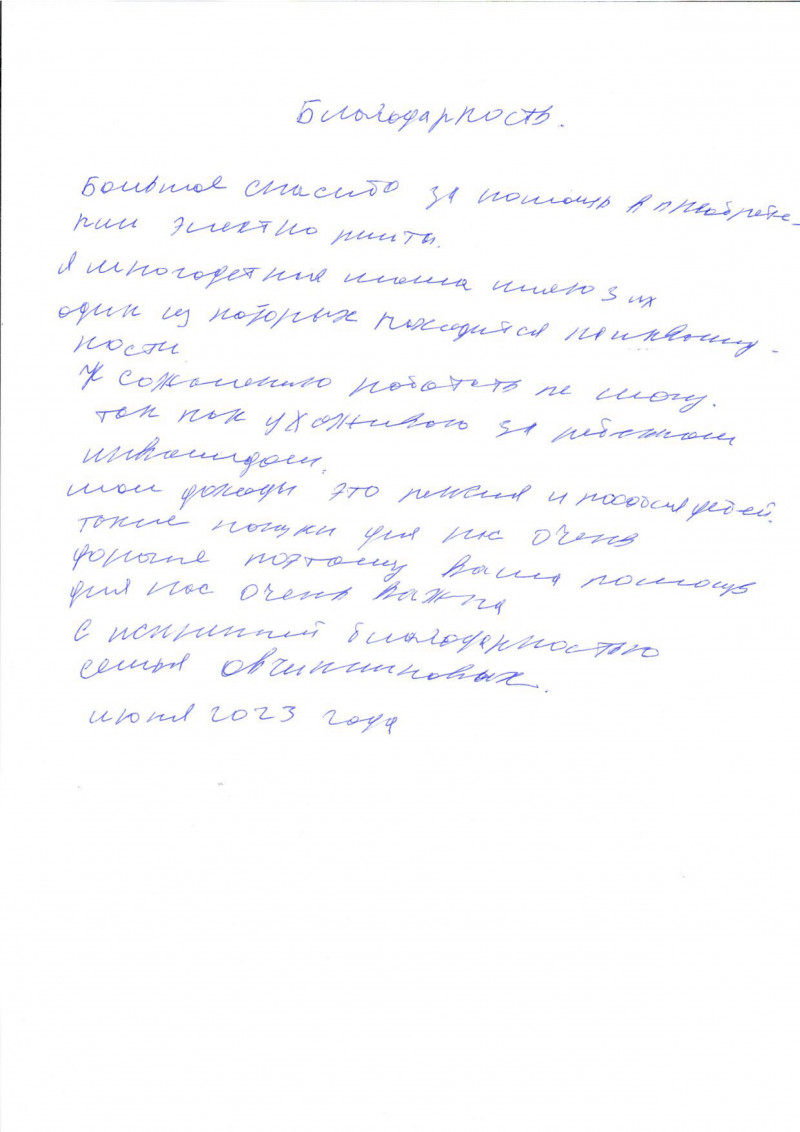 Благодарность.
Большое спасибо за помощь в приобрете-
нии электро плиты.
Я многодетная мама имею 3 их
один из которых находится на инвалид-
ности
К сожалению работать не могу.
так как ухаживаю за ребенком
инвалидом.
мои доходы это пенсия и пособия детей.
такие покупки для нас очень
дорогие поэтому Ваша помощь
для нас очень важна
С искренней благодарностью
семья Овчинниковых.
июня 2023 года